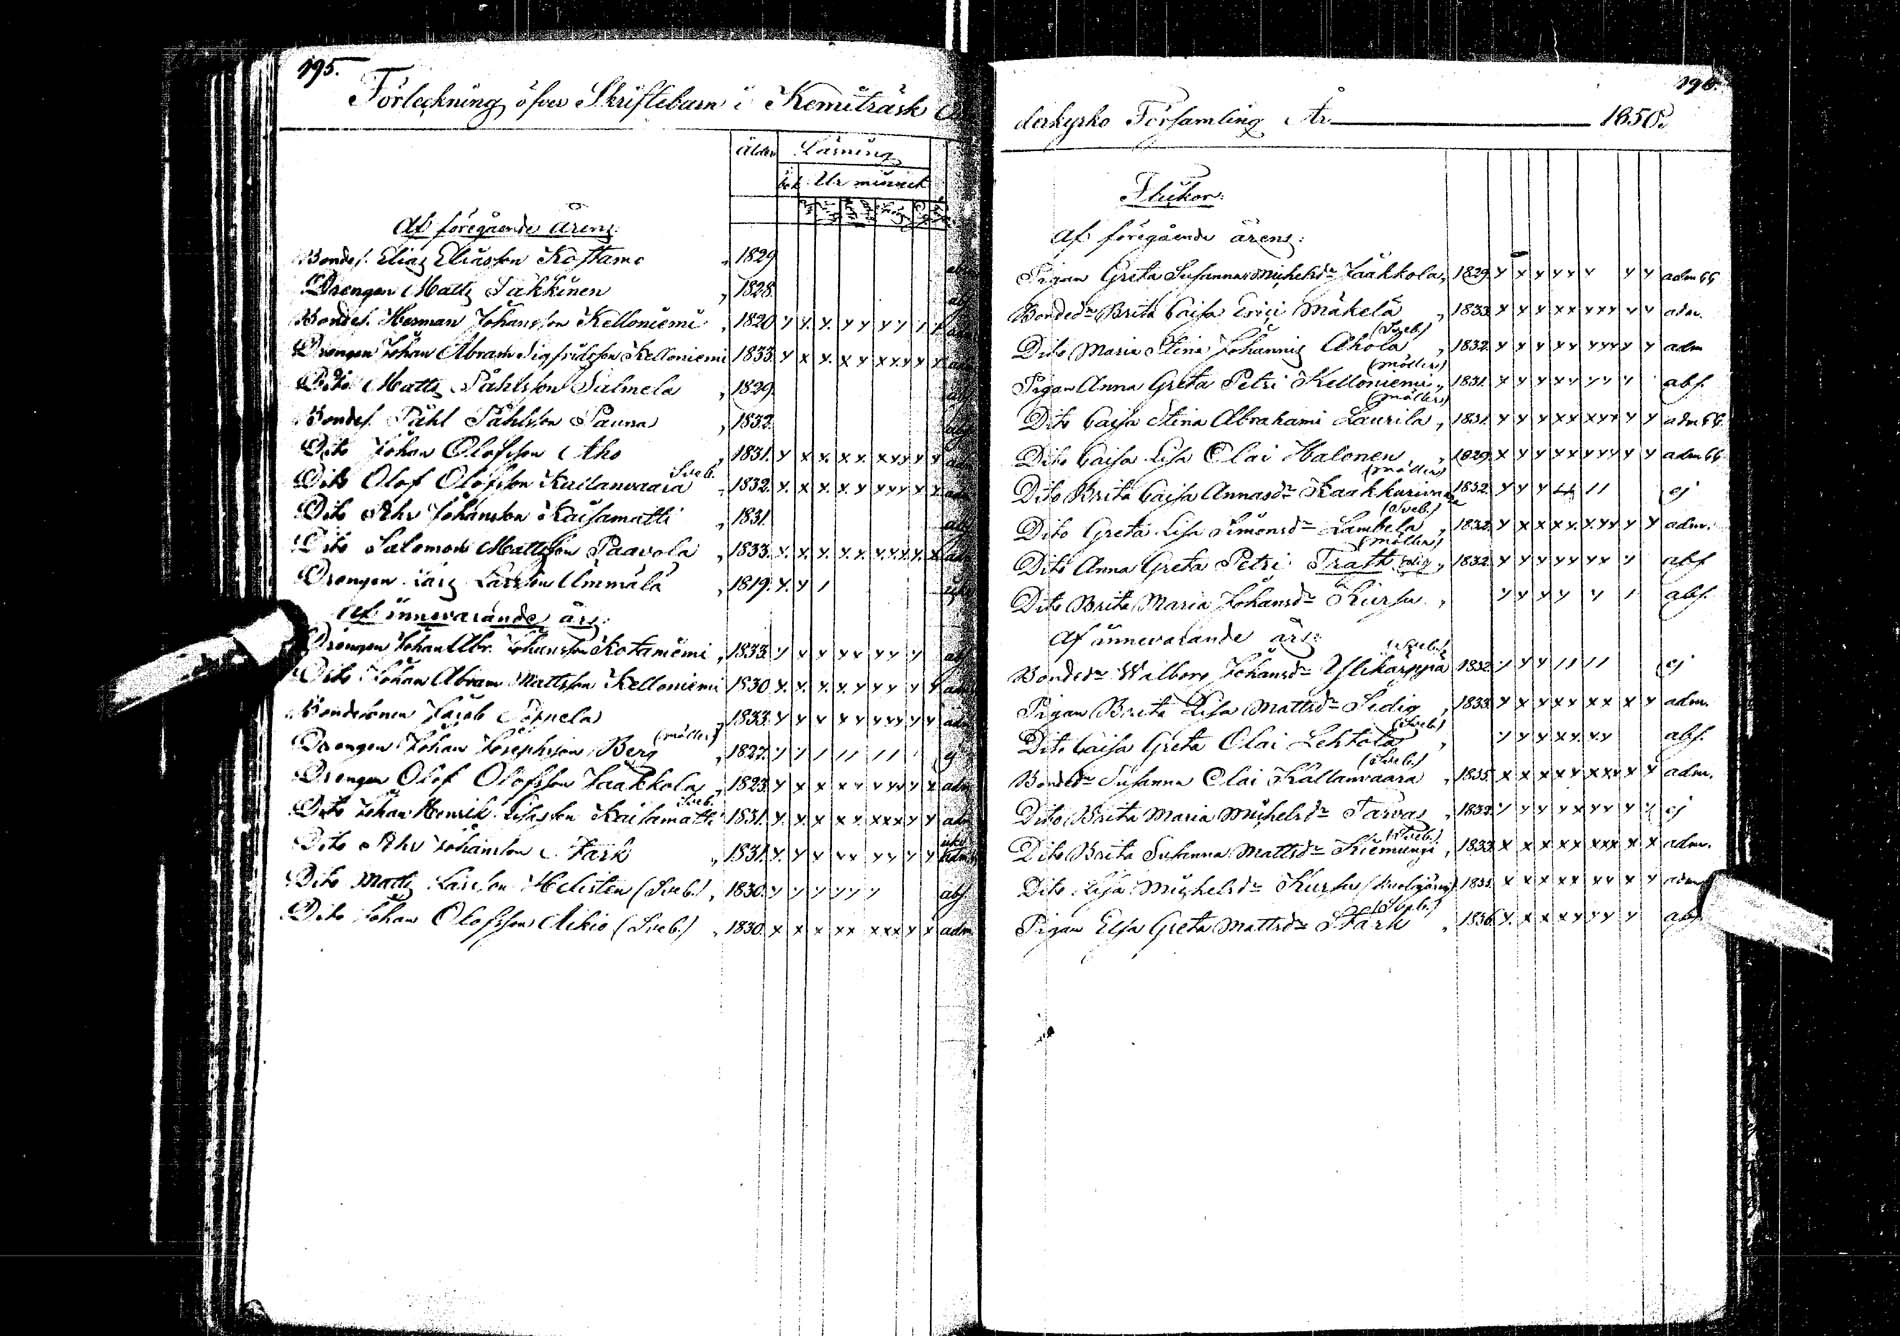 195.
Förteckning öfver Skriftebarn i Kemiträsk
Ålder Läsning
bok Ur minnet
Af föregående årens:
Bondes. Elias Eliasson Kostamo 1829
Drengen Matts Pakkinen 1828. abf
Bondes. Herman Johansson Kelloniemi 1820 x x x x x x x x x adm
Drengen Johan Abram Sigfridsson Kelloniemi 1833 x x x x x x x x x x adm
Dito Matts Påhlsson Salmela 1829. abf
Bondes. Påhl Påhlsson Pauna 1832. abf
Dito Johan Olofsson Aho 1831. x x x x x x x x x x adm
Dito Olof Olofsson Kallanvaara Sveb. 1832. x x x x x x x x x x adm
Dito Ahr Johansson Kaisamatti 1831. abf
Dito Salomon Mattsson Paavola 1833. x x x x x x x x x x adm
Drengen Lars Larsson Ämmälä 1819. x x 1
Af innevarande års:
Drengen Johan Abr. Johansson Kotaniemi 1833. x x x x x x x x abf
Dito Johan Abram Mattsson Kelloniemi 1830 x x x x x x x x x adm
Bondesonen Jacob Pöyliö 1833. x x x x x x x x x x adm
Drengen Johan Josephsson Berg (möller) 1827. x x 1 1 1 1 1 1 ej
Drengen Olof Olofsson Jaakkola 1823 x x x x x x x x x x adm
Dito Johan Henrik Lisasson Kaisamatti Sveb. 1831. x x x x x x x x x x adm
Dito Ahr Johansson Stark 1831. x x x x x x x x x adm
Dito Matts Larsson Helisten (Sveb.) 1830. x x x x x x abf
Dito Johan Olofsson Aikio (Sveb.) 1830. x x x x x x x x x x adm
196.
derkyrko Församling År 1850.
Flickor:
Af föregående årens:
Pigan Greta Susanna Michelsdr Jaakkola, 1829. x x x x x x x x adm
Bondedr Brita Caisa Erici Mäkelä 1833. x x x x x x x x x x adm.
Dito Maria Stina Johannis Ahola (Sveb.) 1832. x x x x x x x x x x adm
Pigan Anna Greta Petri Kelloniemi (möller) 1831. x x x x x x x x abf.
Dito Caisa Stina Abrahami Laurila (möller) 1831. x x x x x x x x x x adm
Dito Caisa Lisa Olai Halonen 1829. x x x x x x x x x x adm
Dito Brita Caisa Annasdr Kaakkurivaara (möller) 1832. x x x 1 1 ej
Dito Greta Lisa Simonsdr Lambela (Sveb.) 1832. x x x x x x x x x x adm.
Dito Anna Greta Petri Trast (möller) 1832. x x x x x x x x abf
Dito Brita Maria Johansdr Kursu x x x x x 1 abf.
Af innevarande års:
Bondedr Walborg Johansdr Ylikärppä (Sveb.) 1832. x x x 1 1 1 1 ej
Pigan Brita Lisa Mattsdr Sedig 1833. x x x x x x x x x adm.
Dito Caisa Greta Olai Lehtola (Sveb.) x x x x x x x abf.
Bondedr Susanna Olai Kallanvaara (Sveb.) 1835. x x x x x x x x x x adm.
Dito Brita Maria Michelsdr Tarvas 1832. x x x x x x x x x ej
Dito Brita Susanna Mattsdr Kiemungi (Sveb.) 1833. x x x x x x x x x x adm.
Dito Lisa Michelsdr Kursu (Kuolajärvi) 1831. x x x x x x x x x adm
Pigan Elsa Greta Mattsdr Stark (Sveb.) 1836. x x x x x x x x abf